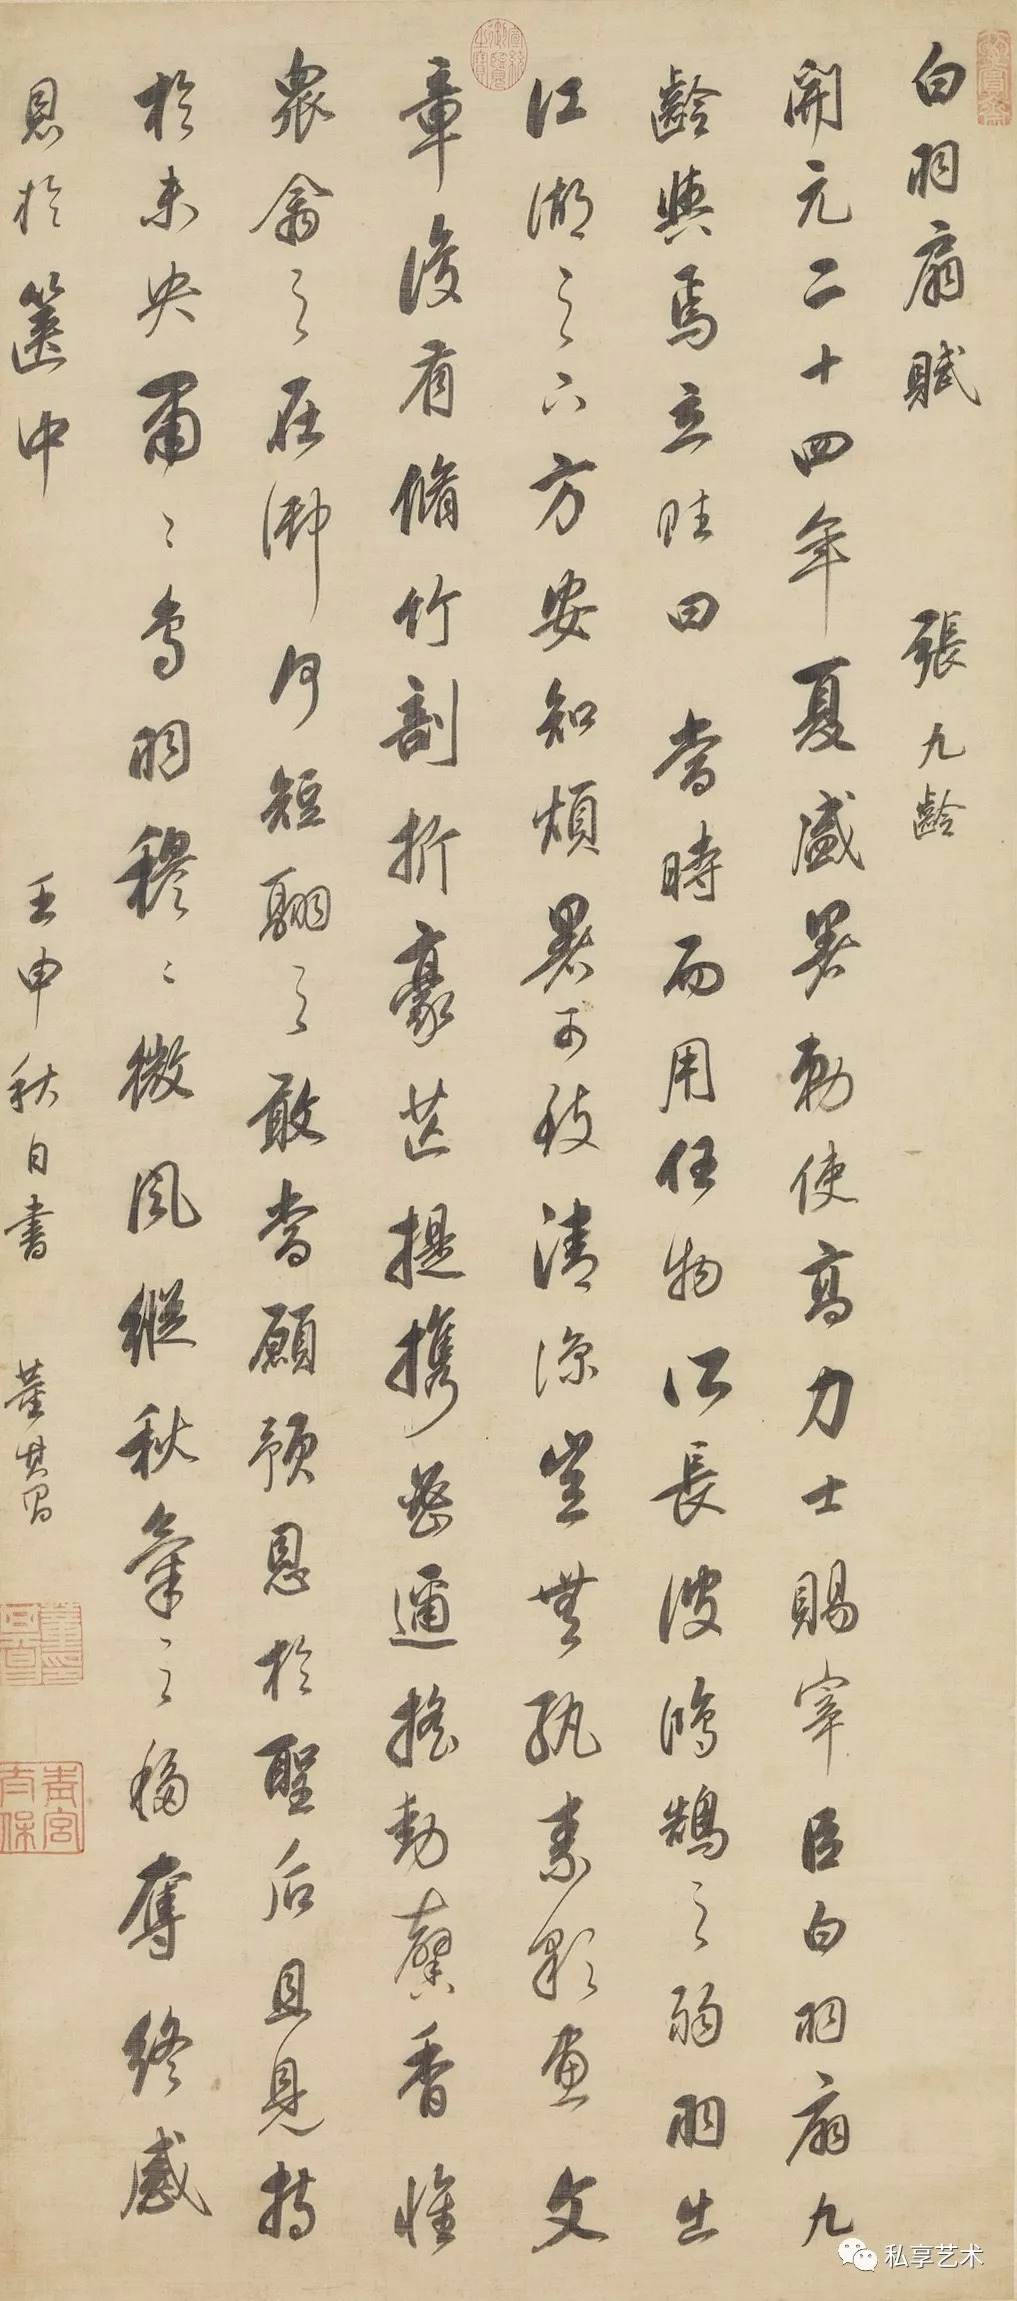 白羽扇賦 張九齡
開元二十四年夏盛暑勅使高力士賜宰臣白羽扇九
齡與焉立賦曰 當時而用任物所長彼鴻鵠之弱羽出
江湖之下方安知煩暑可致清涼豈無紈素彩畫文
章復有脩竹剖析豪芒提攜密邇搖動馨香惟
衆禽之在御何短翮之敢當顧預恩於聖后且見持
於未央肅肅鳥羽穆穆微風縱秋氣之移奪終感
恩於篋中
壬申秋日書 董其昌
青宮太保
私享艺术